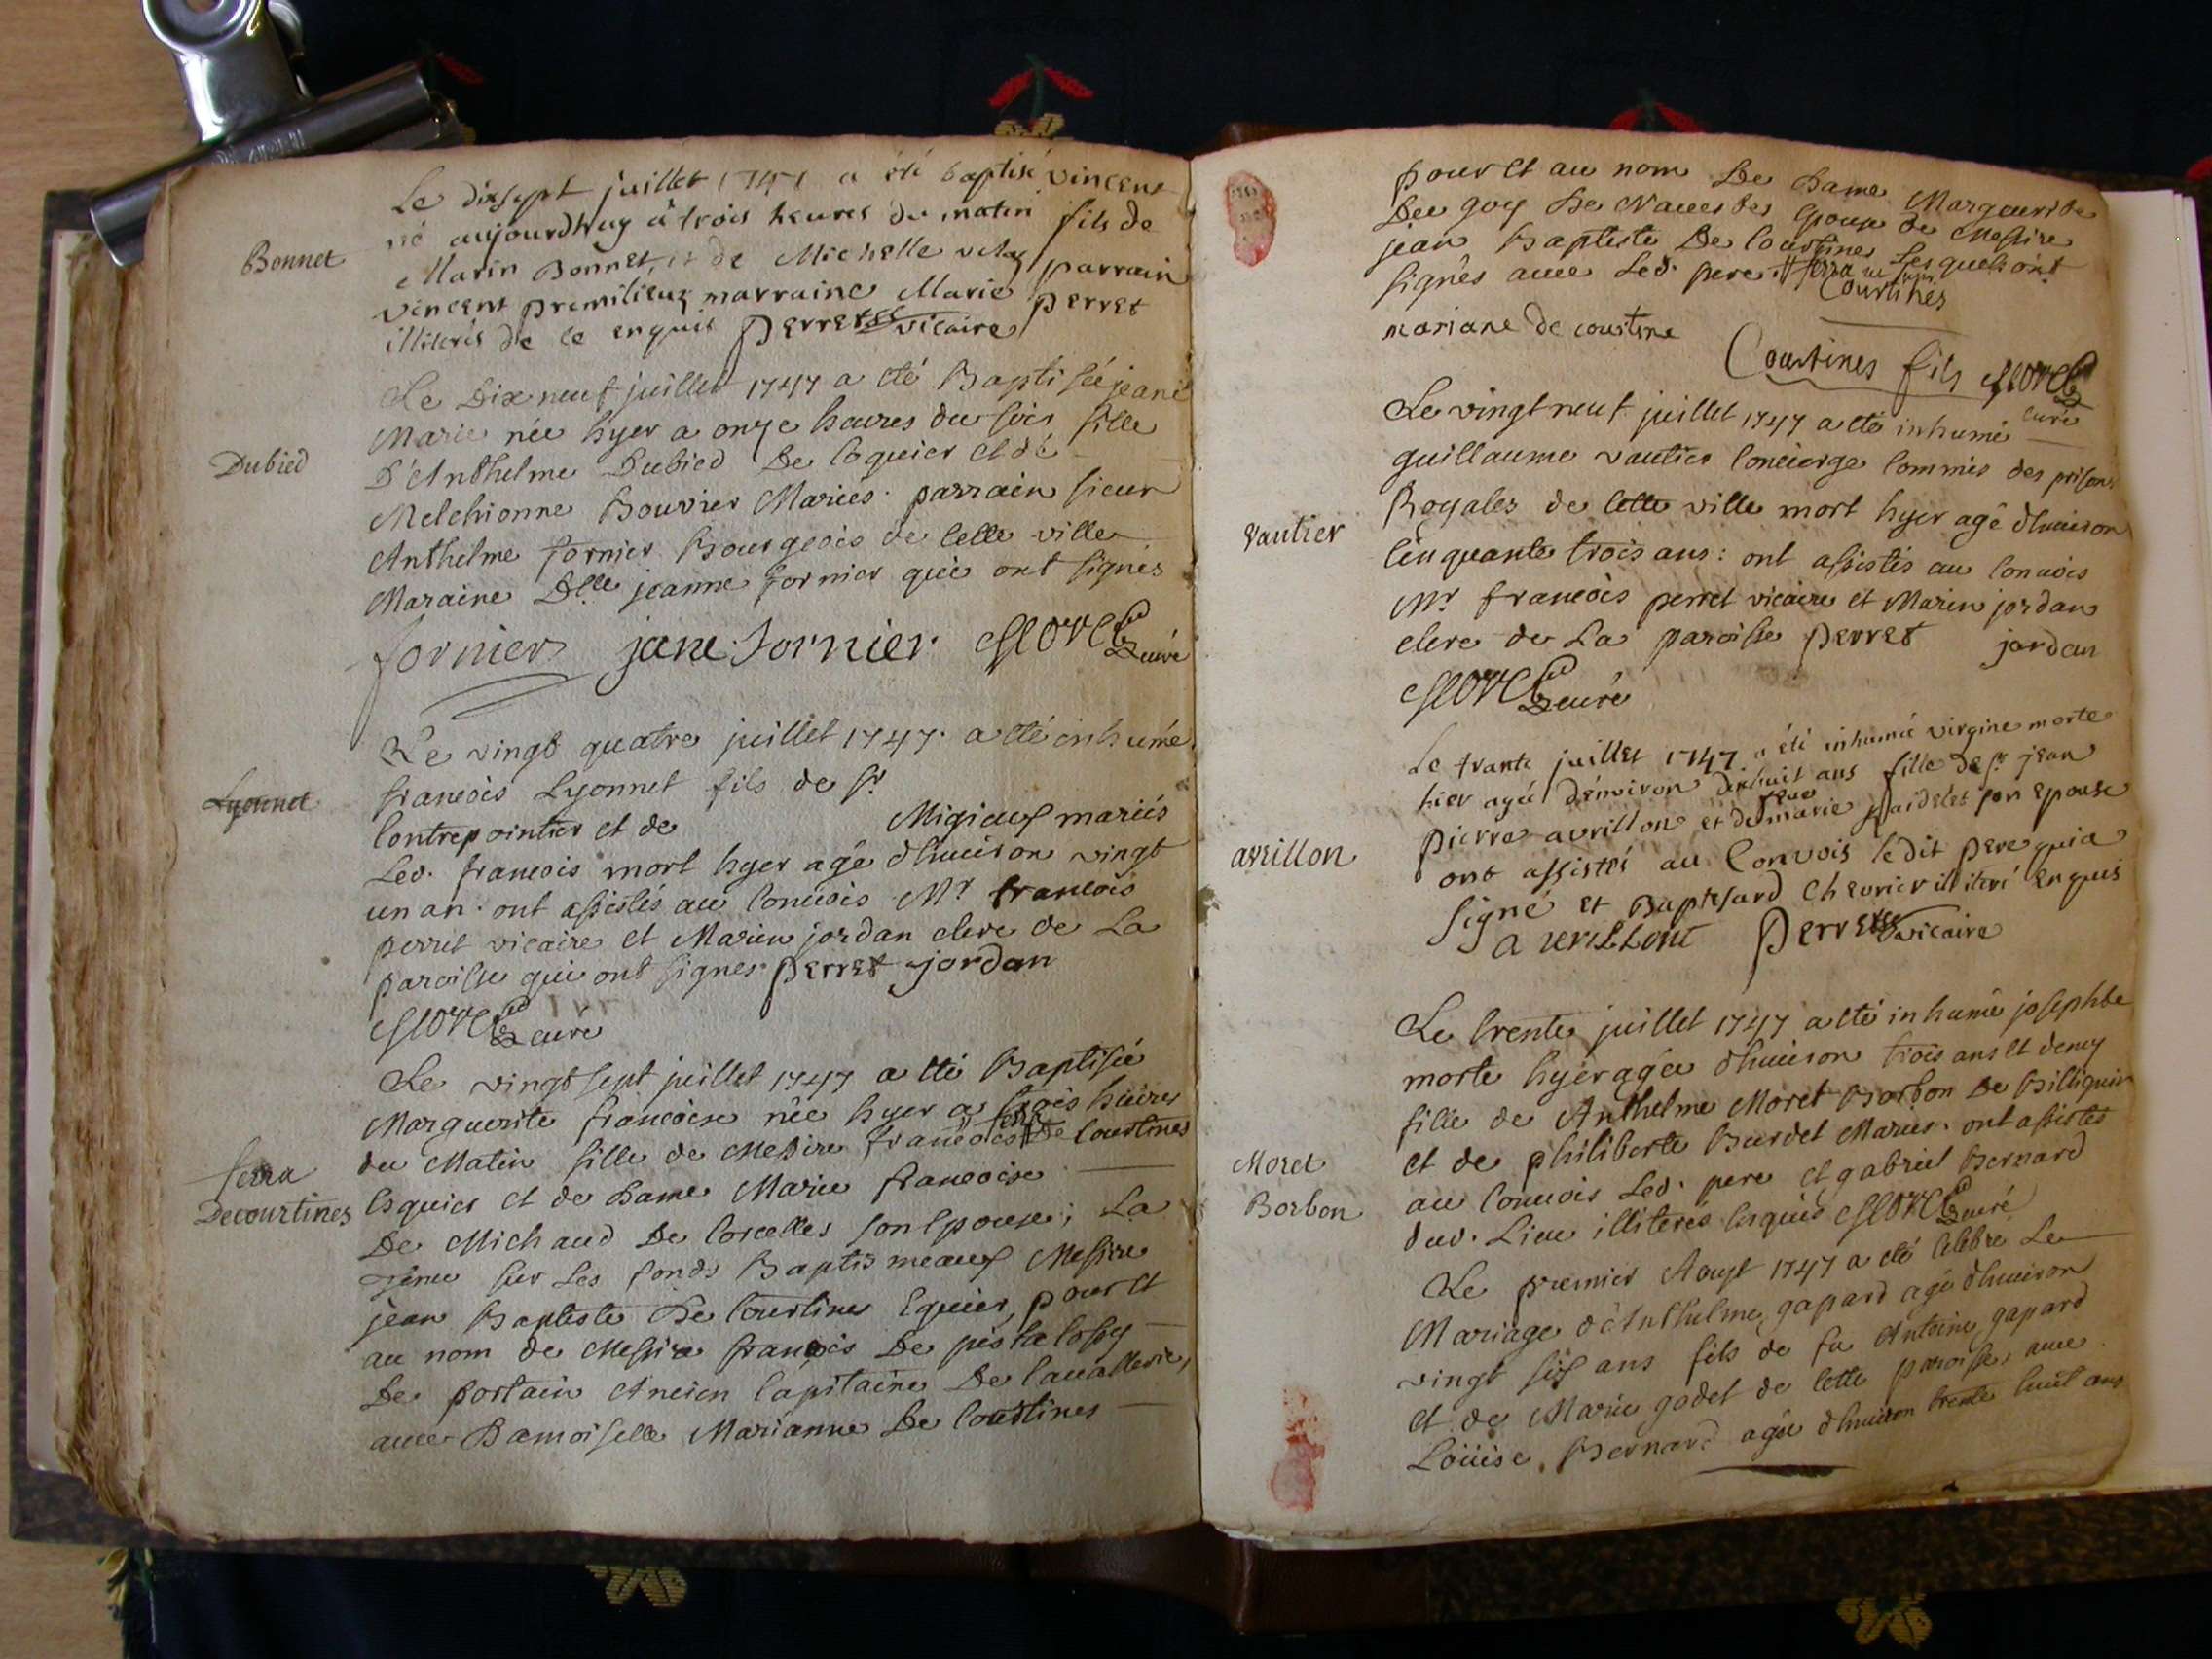 Bonnet
Le dixsept juillet 1747 a été baptisé vincent
né aujourdhuy à trois heures du matin fils de
Marin Bonnet, et de Michelle parrain
vincent premilieux marraine Marie perret
illiterés de ce enquis Perret vicaire
Dubied
Le Dix neuf juillet 1747 a eté Baptisée jeane
Marie née hyer a onze heures du soir fille
D'Anthelme Dubied De Coquier et de
Melchionne Bouvier Mariés. parrain sieur
Anthelme fornier Bourgeois de cette ville
Maraine Dlle jeanne fornier qui ont signés
fornier jane fornier curé
Lyonnet
Le vingt quatre juillet 1747. a eté inhumé
francois Lyonnet fils de sr
Contrepointier et de Migieux mariés
Led. francois mort hyer agé d'huiron vingt
un an. ont assistés au Conuois Mr francois
perret vicaire et Marin jordan clerc de La
paroisse qui ont signés. perret jordan
curé
Le vingt sept juillet 1747 a eté Baptisée
Marguerite francoise née hyer a trois heures
serra
Decourtines
du Matin fille de Messire francois serra De Courtines
Esquier et de Dame Marie francoise
De Michaud De Corcelles son Epouse; La
tenue sur Les fonds Baptismeaux Messire
jean Baptiste De Courtines Equier, pour et
au nom de Messire francois De pestalossy
De portain Ancien Capitaine De Cauallerie,
auec Damoiselle Marianne De Courtines
pour et au nom De Dame Marguerite
De Epouse de Messire
jean Baptiste De Courtines Lesquels ont
signés auec Led. pere. serra
Courtines
mariane de courtine
Courtines fils
curé
Vautier
Le vingt neuf juillet 1747 a eté inhumé
guillaume vautier Concierge Commis des prisons
Royales de Cette ville mort hyer agé d'huiron
Cinquante trois ans: ont assistés au Conuois
Mr francois perret vicaire et Marin jordan
clerc de La paroisse perret jordan
curé
avrillon
Le trante juillet 1747 a été inhumée virgine morte
hier agée d'environ dixhuit ans fille de sr jean
pierre avrillon et de marie paidelet son epouse
ont assistés au Convois ledit pere qui a
signé et Baptesard Chevrier illiteré enquis
averillont Perret vicaire
Moret
Borbon
Le trente juillet 1747 a eté inhumé josephte
morte hyer agée d'huiron trois ans et demy
fille de Anthelme Moret Borbon De Billignin
et de philiberte Burdet Mariés. ont assistés
au Conuois Led. pere et gabriel Bernard
dud. Lieu illiterés Enquis curé
Le premier Aoust 1747 a eté Celebré Le
Mariage d'Anthelme gapard agé d'huiron
vingt six ans fils de fu Antoine gapard
et de Marie godet de Cette paroisse, auec
Loüise Bernard agée d'huiron trente huit ans